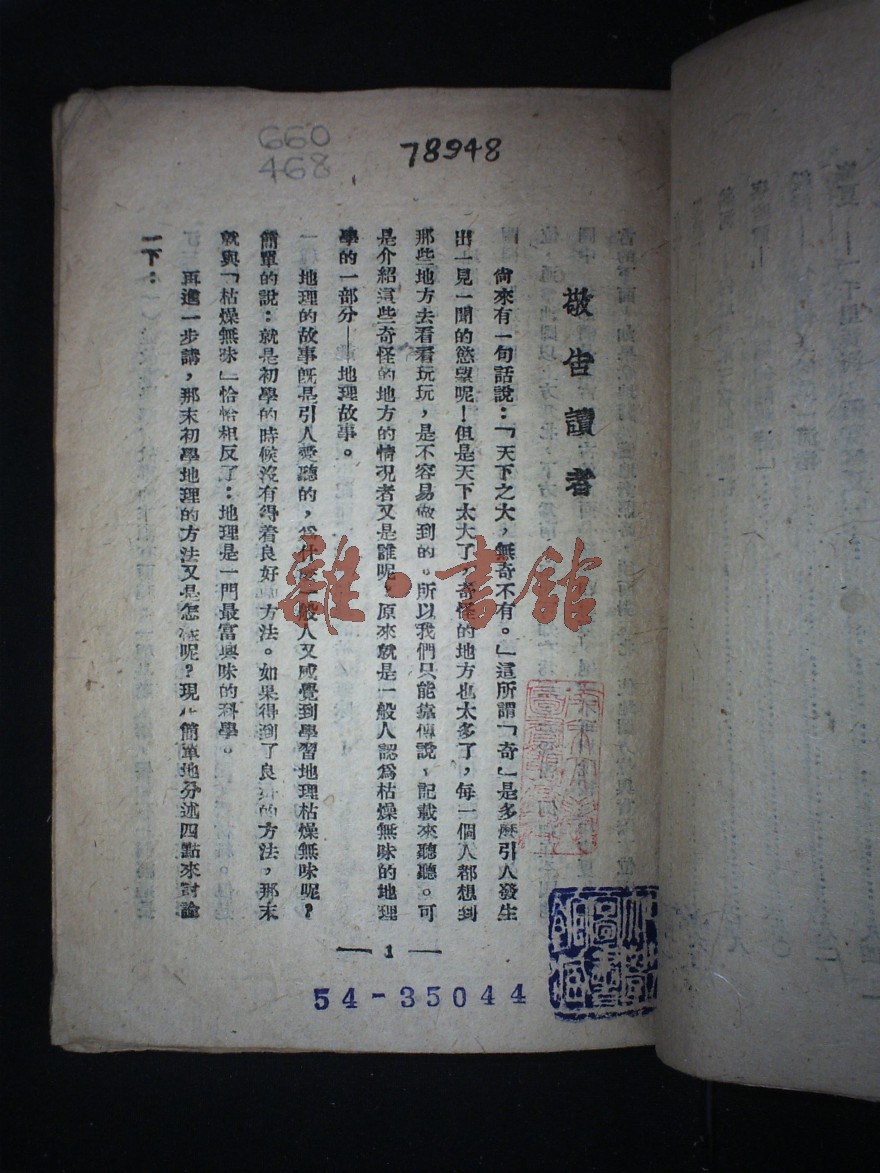 660
468
78948
敬告讀者
尙來有一句話說：「天下之大，無奇不有。」這所謂「奇」是多麽引人發生
出一見一聞的慾望呢！但是天下太大了，奇怪的地方也太多了，每一個人都想到
那些地方去看看玩玩，是不容易做到的。所以我們只能靠傳說，記載來聽聽。可
是介紹這些奇怪的地方的情况者又是誰呢，原來就是一般人認爲枯燥無味的地理
學的一部分——地理故事。
地理的故事旣是引人愛聽的，爲什麽一般人又感覺到學習地理枯燥無味呢？
簡單的說：就是初學的時候沒有得着良好方法。如果得到了良好的方法，那末
就與「枯燥無味」恰恰相反了：地理是一門最富興味的科學。
再進一步講，那末初學地理的方法又是怎樣呢？現簡單地分述四點來討論
一下：
— 1 —
54-35044
雜·書館